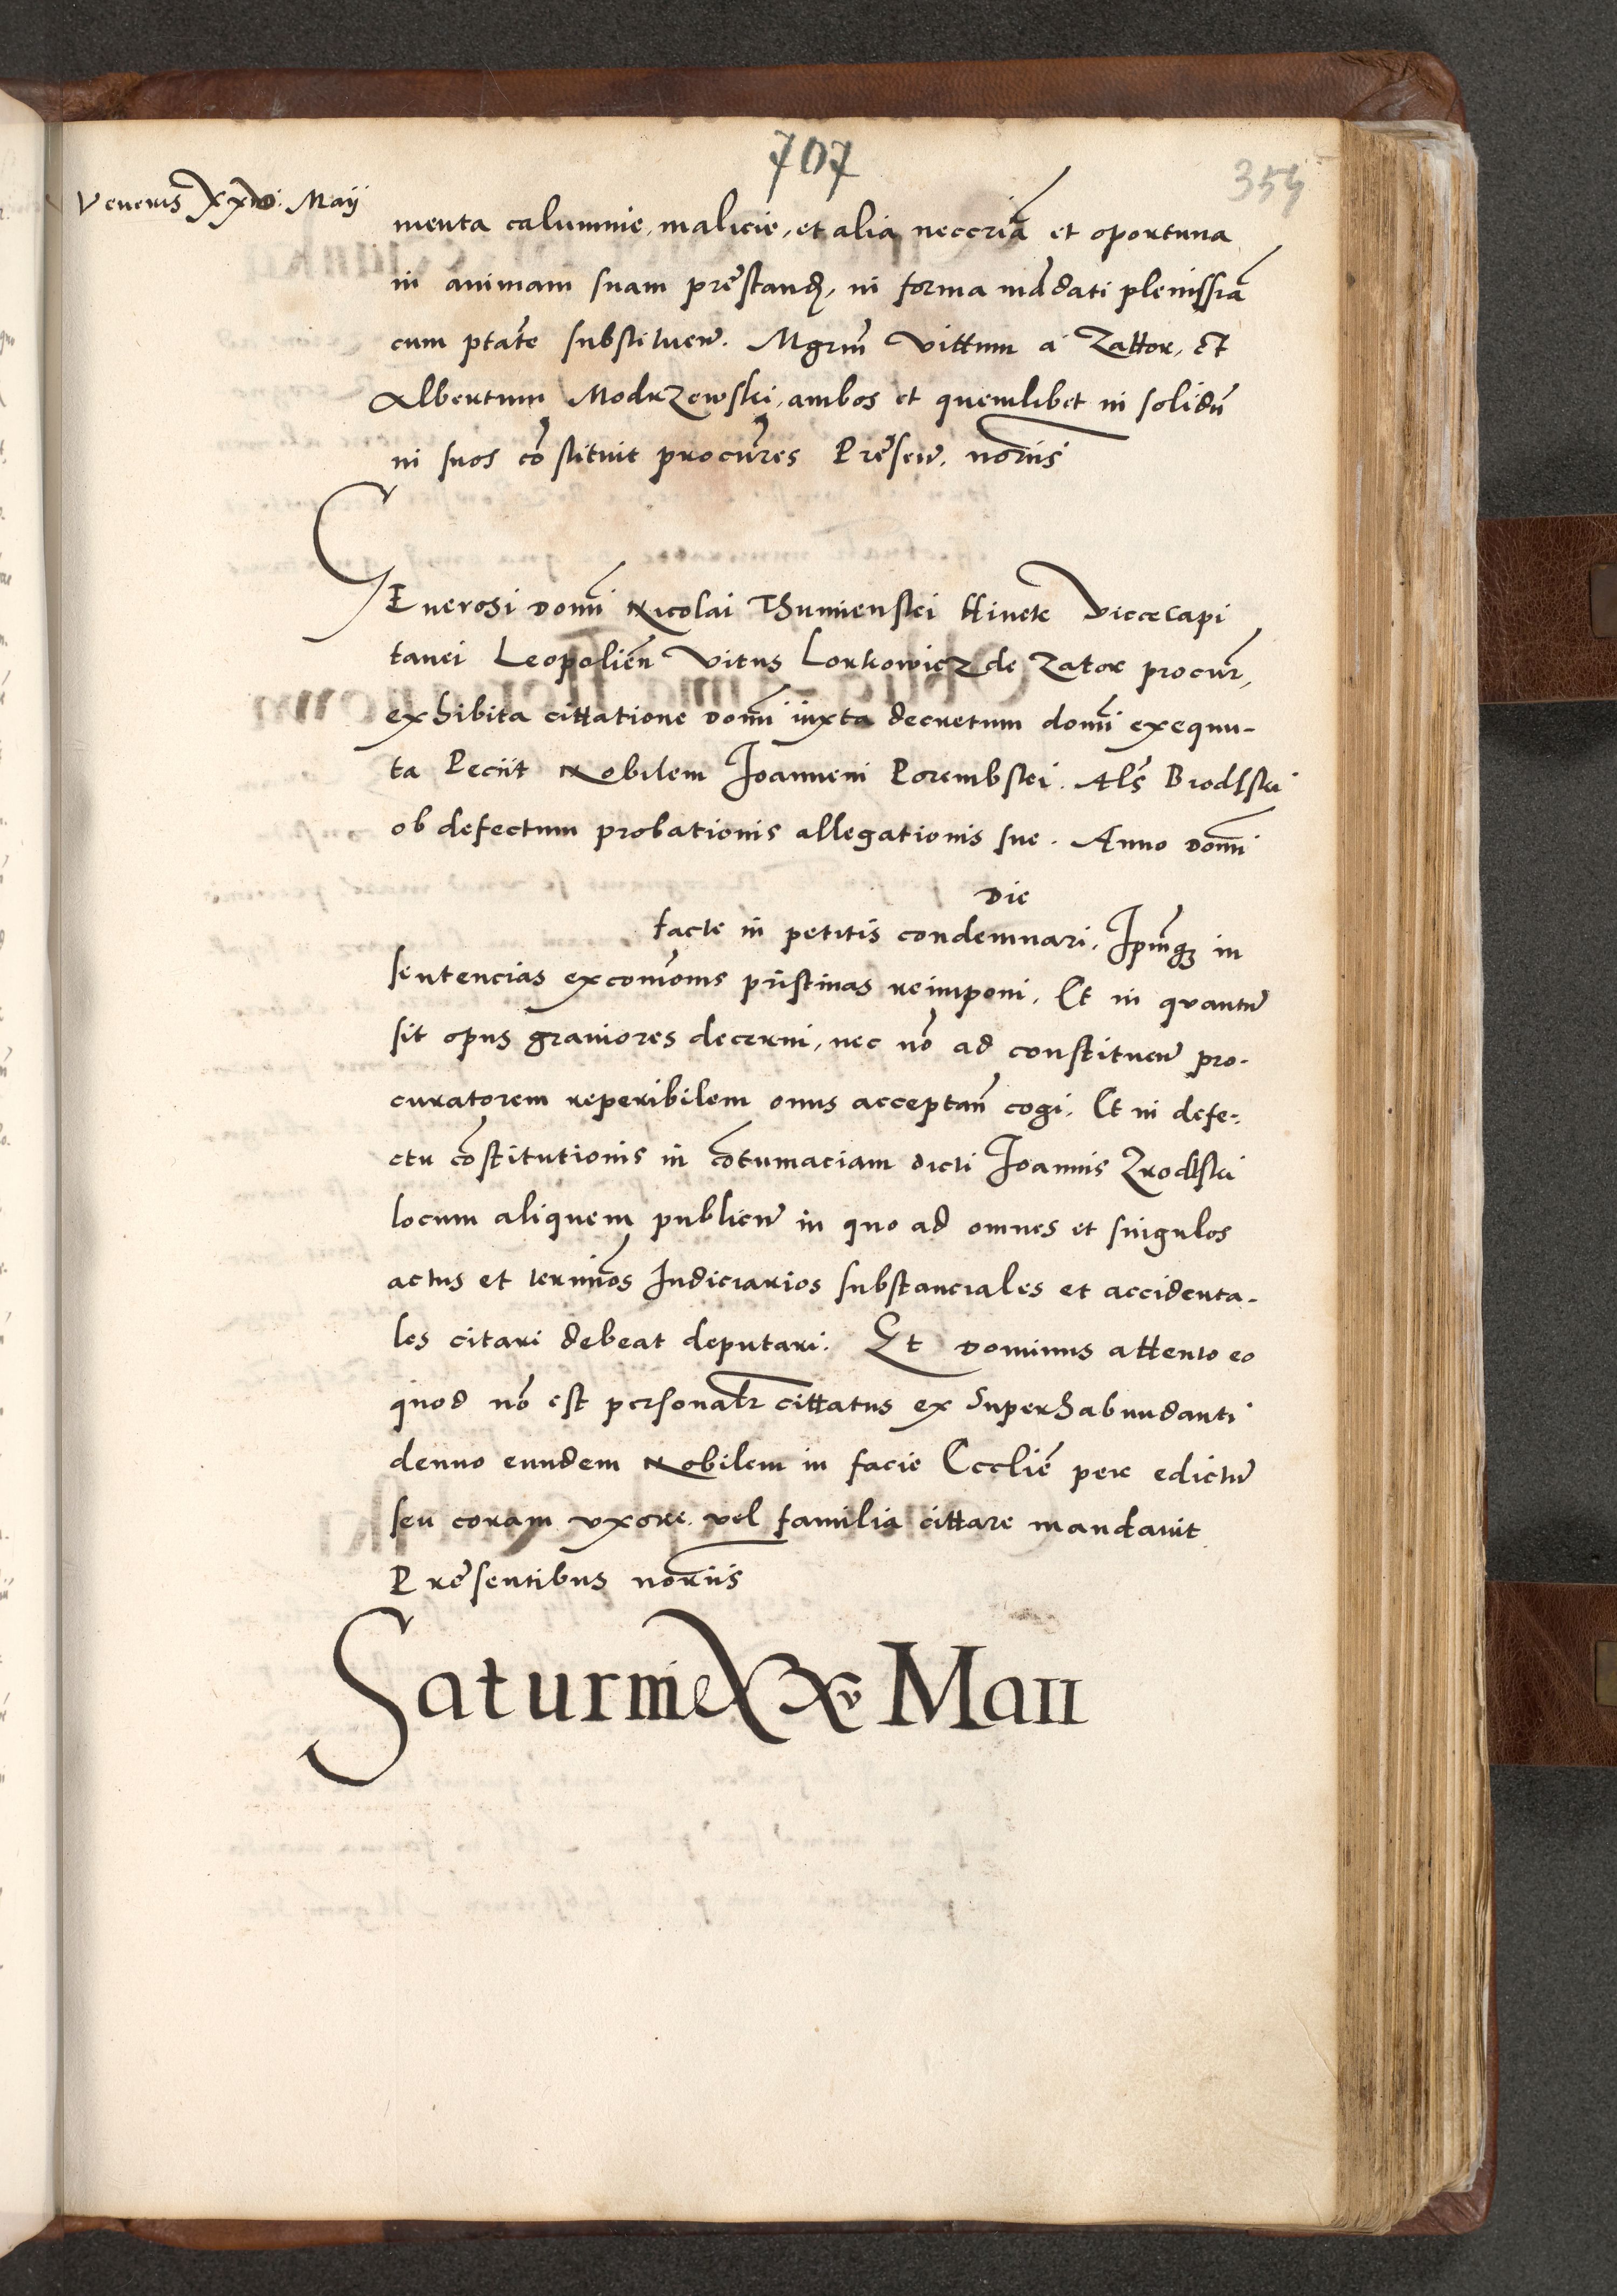 707
354
Veneris Maij
menta calumnie, malicie, et alia neccriã et oportuna
in animam suam prẽstand, in forma mãdati plenissiã
cum ptãte substituen̄. Mgrm̃ Vittum a Zattor, Et
Albertum Modrzewski, ambos et quemlibet in solidũ
in suos cõstituit procũres Prẽsen̄. notr̃iis
GEnerosi domĩ Nicolai Viccecapi
tanei Leopolien̄ Vitus Lorkowicz de Zator procur̃,
exhibita cittatione domĩ iuxta decretum domĩ exequu-
ta Peciit Nobilem Joannem Porembski. Als̃
ob defectum probationis allegationis sue. Anno domĩ
Die
facte in petitis condemnari. Ipm̃qz in
sentencias excom̃onis pristinas reimponi. Et in quantũ
sit opus graviores decerni, nec nõ ad constituen̄ pro-
curatorem reperibilem onus acceptan̄ cogi. Et in defe-
ctu cõstitutionis in cõtumaciam dicti Joannis
locum aliquem publicũ in quo ad omnes et singulos
actus et terminõs Judiciarios substanciales et accidenta-
les citari debeat deputari. Et Dominus attento eo
quod nõ est personalr̃ cittatus ex Superhabundanti
denuo eundem Nobilem in facie Ecclie̅ per edictũ
seu coram uxore vel familia cittare mandavit
Prẽsentibus notr̃iis
Saturni XXV MaII